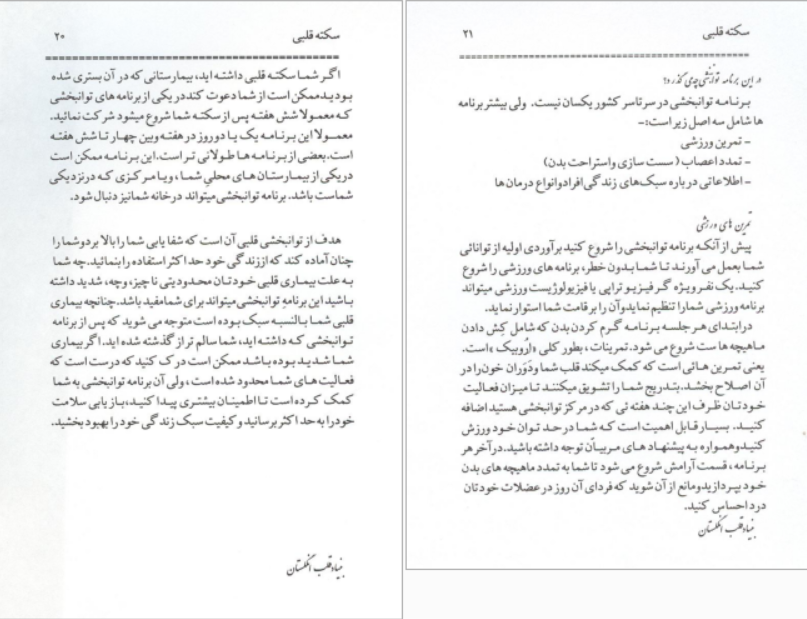 سکته قلبی ۲۰
اگر شما سکته قلبی داشته اید، بیمارستانی که در آن بستری شده
بودید ممکن است از شما دعوت کند در یکی از برنامه های توانبخشی
که معمولا شش هفته پس از سکته شما شروع میشود شرکت نمائید.
معمولا این برنامه یک یا دو روز در هفته وبین چهار تا شش هفته
است. بعضی از برنامه ها طولانی تر است. این برنامه ممکن است
در یکی از بیمارستان های محلي شما، ویا مرکزی که در نزدیکی
شماست باشد. برنامه توانبخشی میتواند در خانه شما نیز دنبال شود.
هدف از توانبخشی قلبی آن است که شفا یابی شما را بالا بر دو شما را
چنان آماده کند که از زندگی خود حد اکثر استفاده را بنمائید. چه شما
به علت بیماری قلبی خودتان محدودیتی ناچیز، وچه، شدید داشته
باشید این برنامه توانبخشی میتواند برای شما مفید باشد. چنانچه بیماری
قلبی شما بالنسبه سبک بوده است متوجه می شوید که پس از برنامه
توانبخشی که داشته اید، شما سالم تر از گذشته شده اید. اگر بیماری
شما شدید بوده باشد ممکن است درک کنید که درست است که
فعالیت های شما محدود شده است، ولی آن برنامه توانبخشی به شما
کمک کرده است تا اطمینان بیشتری پیدا کنید، باز یابی سلامت
خود را به حد اکثر برسانید و کیفیت سبک زندگی خود را بهبود بخشید.
بنیاد قلب انگلستان
سکته قلبی ۲۱
در این برنامه توانبخشی چه می گذرد؟
برنامه توانبخشی در سرتاسر کشور یکسان نیست. ولی بیشتر برنامه
ها شامل سه اصل زیر است:-
- تمرین ورزشی
- تمدد اعصاب ( سست سازی و استراحت بدن)
- اطلاعاتی در باره سبک های زندگی افراد و انواع درمان ها
تمرین های ورزشی
پیش از آنکه برنامه توانبخشی را شروع کنید برآوردی اولیه از توانائی
شما بعمل می آورند تا شما بدون خطر، برنامه های ورزشی را شروع
کنید. یک نفر ویژه گر فیزیو تراپی یا فیزیولوژیست ورزشی میتواند
برنامه ورزشی شما را تنظیم نماید وآن را بر قامت شما استوار نماید.
در ابتدای هر جلسه برنامه گرم کردن بدن که شامل کِش دادن
ماهیچه ها ست شروع می شود. تمرینات، بطور کلی «اروبیک» است.
یعنی تمرین هائی است که کمک میکند قلب شما ودَوَران خون را در
آن اصلاح بخشد. بتدریج شما را تشویق میکنند تا میزان فعالیت
خودتان ظرف این چند هفته ئی که در مرکز توانبخشی هستید اضافه
کنید. بسیار قابل اهمیت است که شما در حد توان خود ورزش
کنید وهمواره به پیشنهاد های مربیان توجه داشته باشید. در آخر هر
برنامه، قسمت آرامش شروع می شود تا شما به تمدد ماهیچه های بدن
خود بپردازید ومانع از آن شوید که فردای آن روز در عضلات خودتان
درد احساس کنید.
بنیاد قلب انگلستان